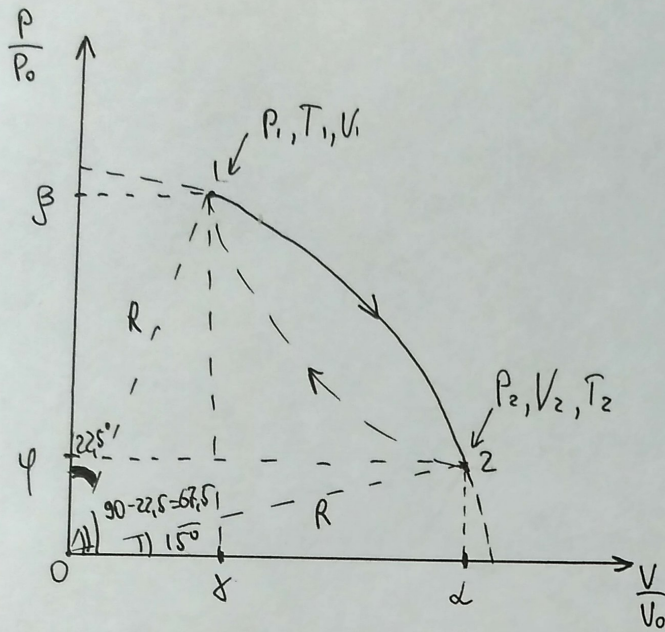 P
P₀
P₁, T₁, V₁
1
β
R
P₂, V₂, T₂
22,5°
φ
2
90-22,5=67,5
R
15°
0
γ
α
V
V₀